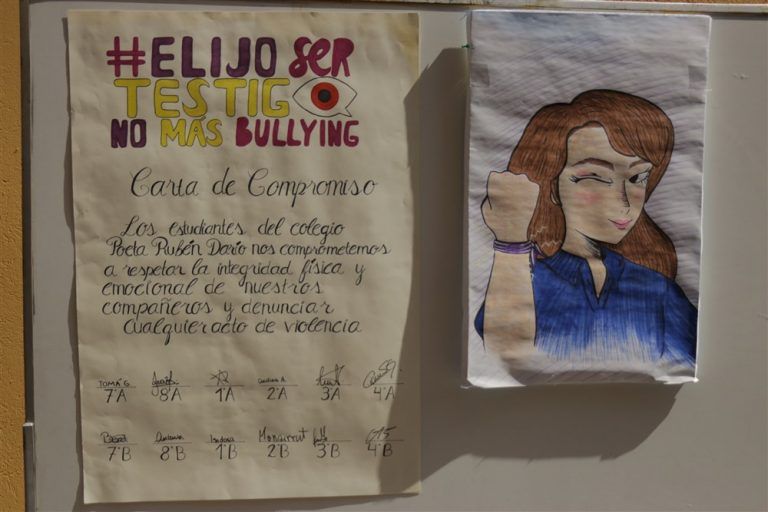 #ELIJO SER
TESTIGO
NO MÁS BULLYING
Carta de Compromiso
Los estudiantes del colegio
Poeta Rubén Darío nos comprometemos
a respetar la integridad física y
emocional de nuestros
compañeros y denunciar
cualquier acto de violencia
TOMÁS G.
7°A 8°A 1°A 2°A 3°A 4°A
Monserrat
7°B 8°B 1°B 2°B 3°B 4°B